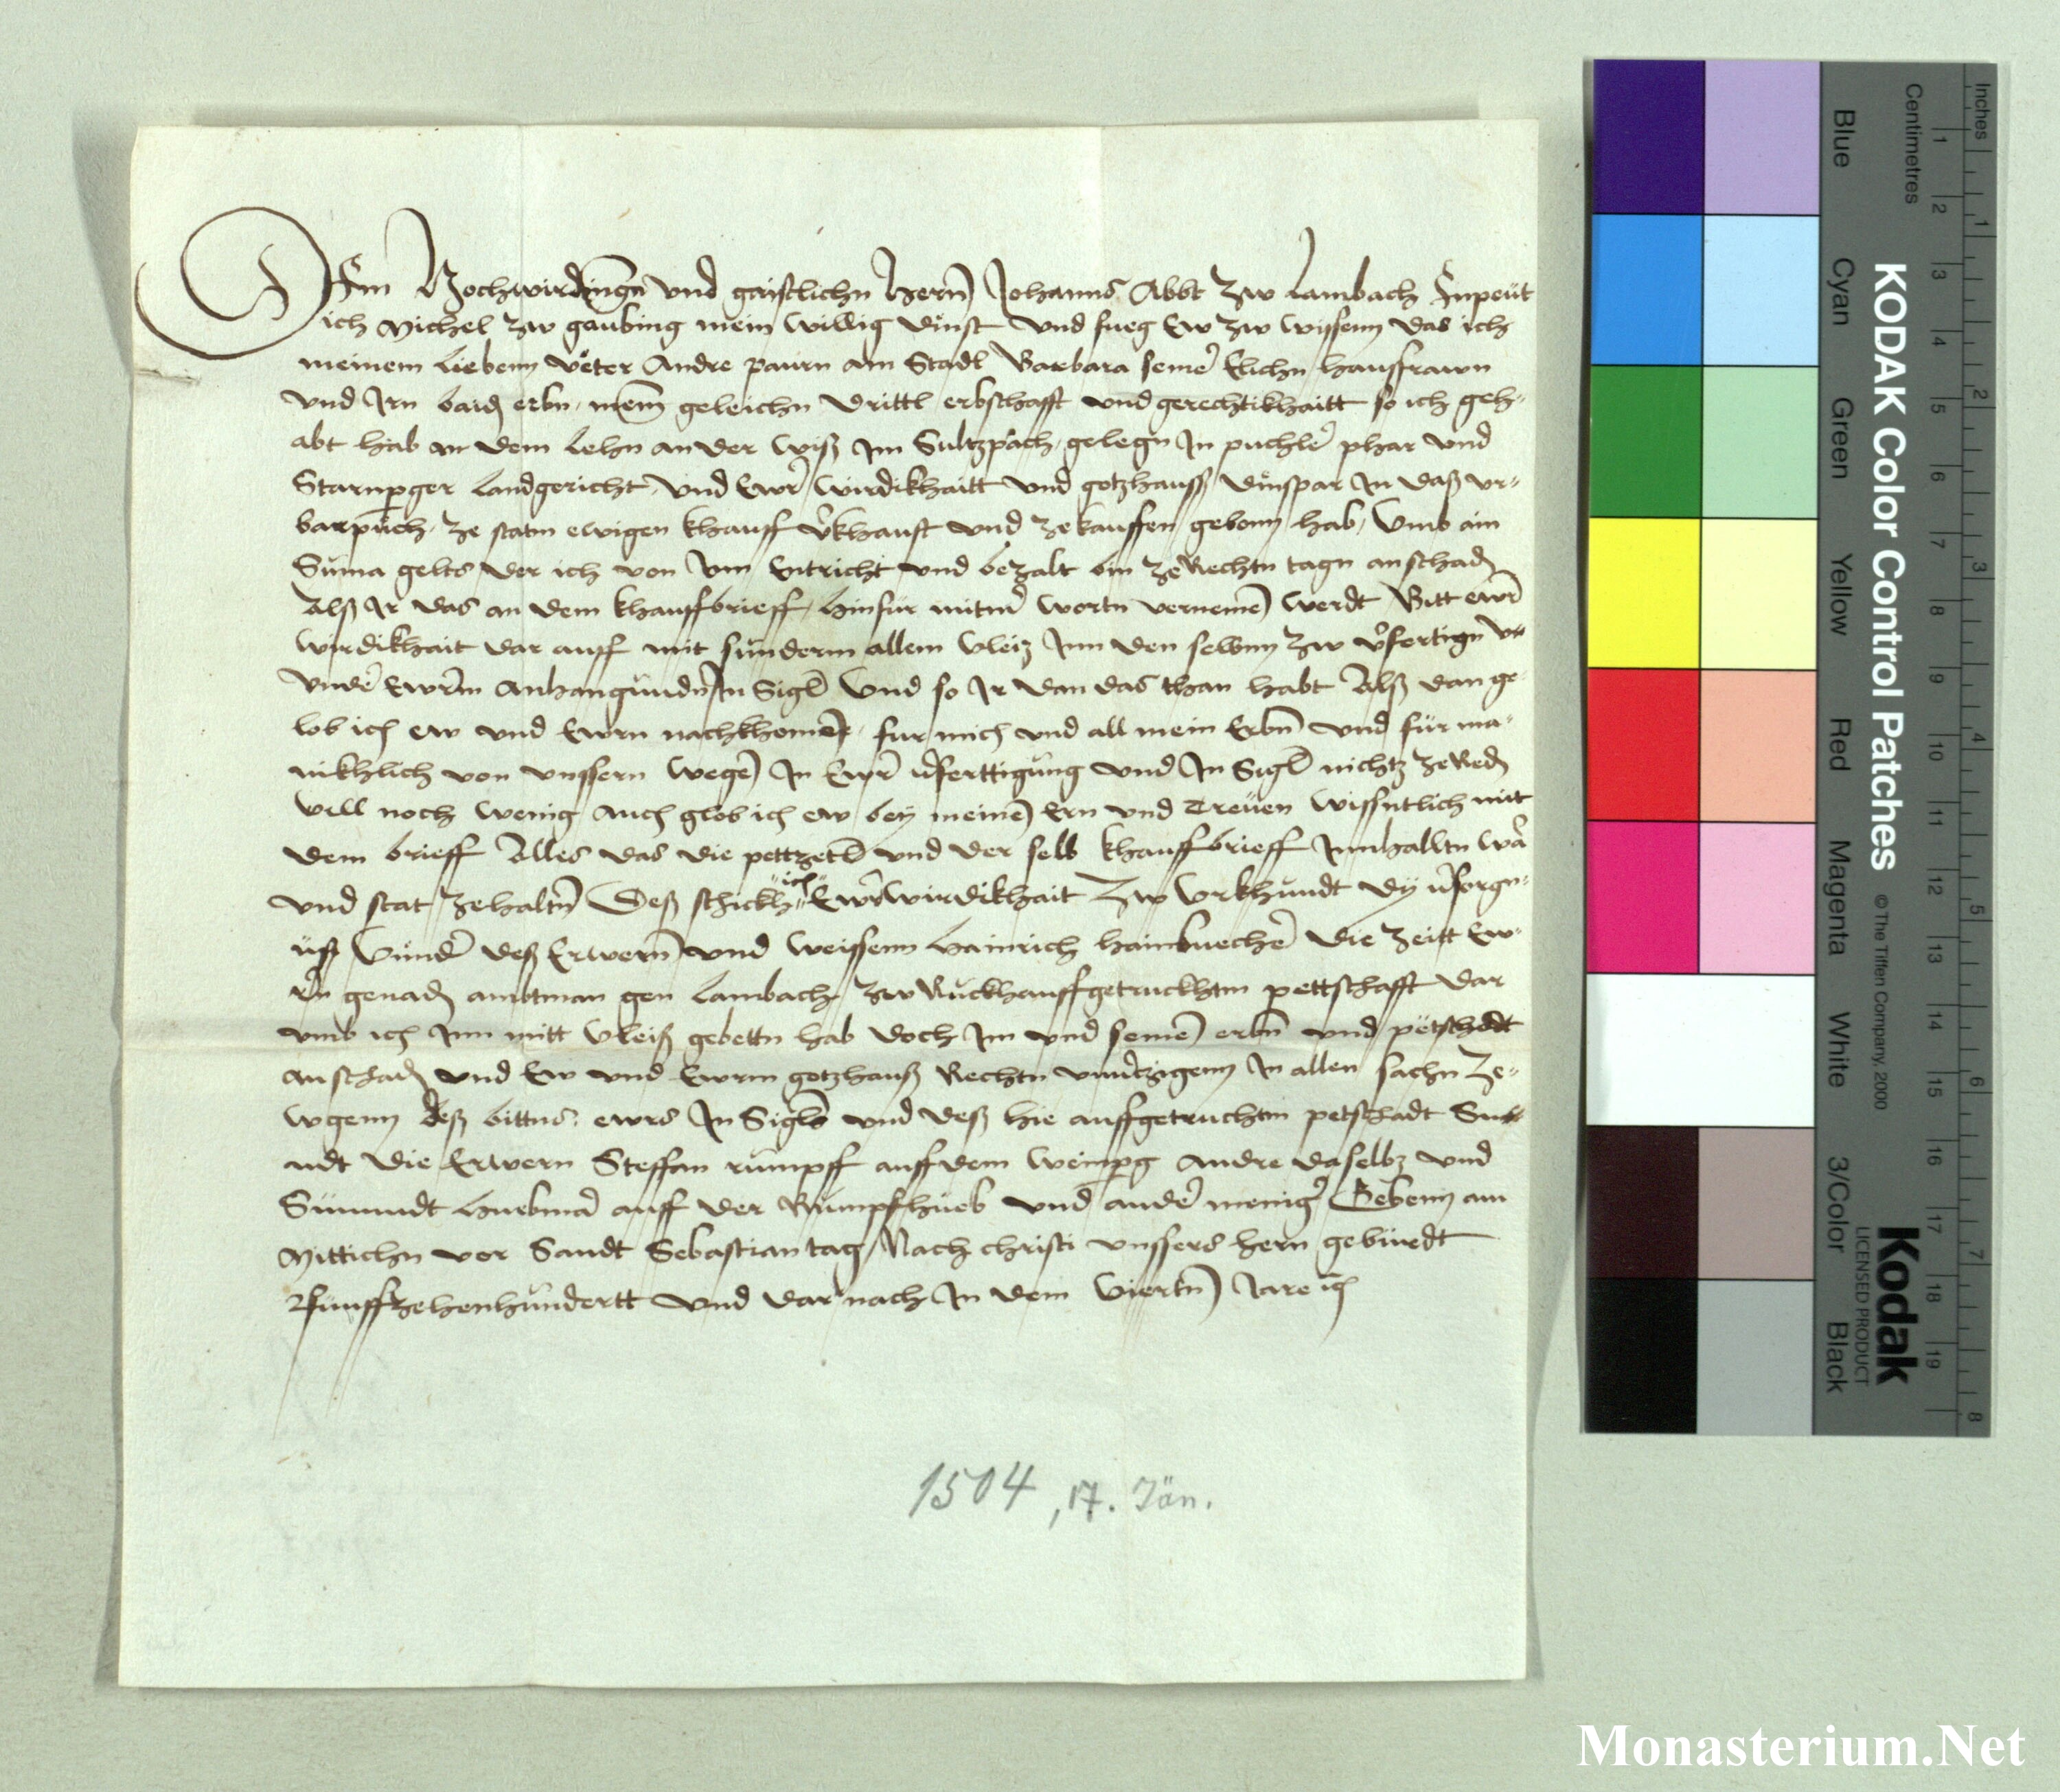 Dem Hochwirdingn vnd gaistlichn hern Johanns Abbt zw Lambach Enpeüt
ich Michel zw gaubing mein willig dinst vnd fueg Ew zw wissenn das ich
meinem liebenn veter Andre paurn am Stadl Barbara seiner Elichn hausfrawn
vnd Irn baiden erbn mein geleichn drittl erbschafft vnd gerechtikhaitt so ich geh-
abt hab an dem lehn an der wiß Im Sultzpach gelegn In puchler phar vnd
Starnpger landgericht vnd Ewr wirdikhaitt vnd gotzhauß dinspar In daß vr-
barpuch ze statn ewigen khauff v'khaufft vnd ze kauffen gebenn hab vmb ain
Suma gelts der ich von Inn Entricht vnd bezalt bin ze Rechtn tagn an schaden
Alß Ir das an dem khauffbrieff hinfür mit wortn vernemen werdt Bitt ewr
wirdikhait dar auff mit sunderm allem vleiz Inn den selbnn zw v'fertign
vnder Ewrm Anhangunden In Sigl Vnd so Ir dan das than habt Alß dan ge
lob ich ew vnd Ewrn nachkhomen fur mich vnd all mein Erbn vnd für ma-
nikhlich von vnssern wegen In Ewr v'ferttigung vnd In Sigl nichtz ze Reden
vill noch wenig Auch glob ich ew bey meinen Ern vnd Treuen wissntlich mit
dem brieff Alles das die pettzetl vnd der selb khauffbrieff Innhalltn war
vnd stat ze haltn Deß schickh ich Ewr wirdikhait Zw Vrkhundt dy v'sorgn-
üß Vnnder deß Erwern vnd weissenn hainrich hainbuecher die zeitt Ew-
rn genaden ambtman gen Lambach zw Ruckhauffgetruckhtm pettschafft dar
vmb ich Inn mitt vleiß gebettn hab doch Im vnd seinen erbn vnd petschadt
an schaden vnd Ew vnd Ewrm gotzhauß Rechtn vnv'zigenn In allen sachn Ze-
wgenn deß bittns ewrs In Sigls vnd deß hie auffgetruchtm petschadt Sin
ndt die Erwern Steffan rumpff auff dem weinpg Andre daselbz vnd
Simundt huebmer auff der Rumpfhueb vnd ander meniger Gebenn am
Mittichn vor Sandt Sebastian tag Nach christi vnssers hern gebürdt
Funffzehenhundertt vnd dar nach In dem Viertn Jare
1504, 17. Jän.
Inches
Centimetres
KODAK Color Control Patches
© The Tiffen Company, 2000
Kodak
LICENSED PRODUCT
Blue
Cyan
Green
Yellow
Red
Magenta
White
3/Color
Black
1 2 3 4 5 6 7 8 9 10 11 12 13 14 15 16 17 18 19
1 2 3 4 5 6 7 8
Monasterium.Net